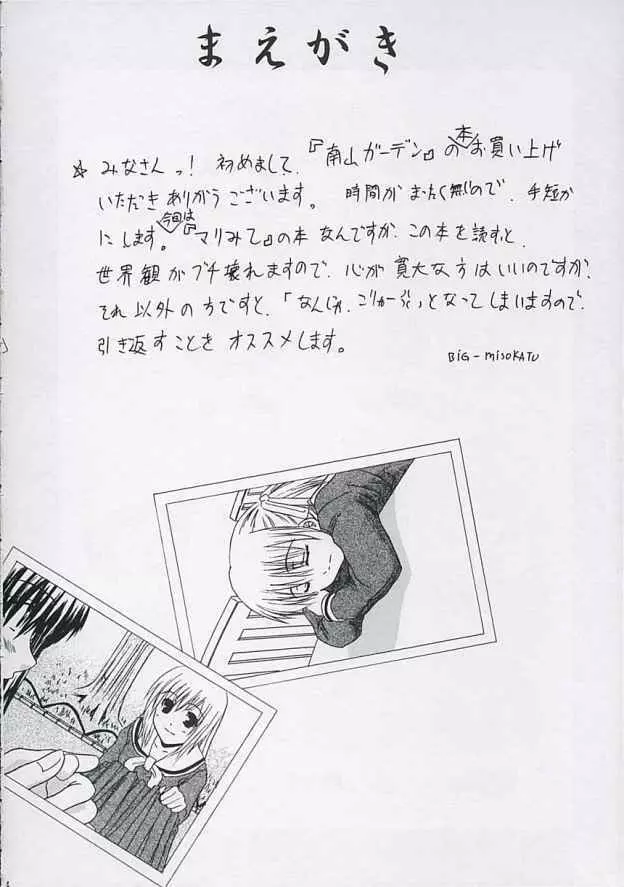 まえがき
☆ みなさんっ! 初めまして、『南山ガーデン』の本お買い上げ
いただきありがとうございます。 時間がまったく無いので、手短か
にします。今回は『マリみて』の本なんですが、この本を読すと、
世界観がブチ壊れますので、心が寛大な方はいいのですが、
それ以外の方ですと、「なんじゃ、こりゃーっ!」となってしまいますので、
引き返すことをオススメします。
BIG-MISOKATU